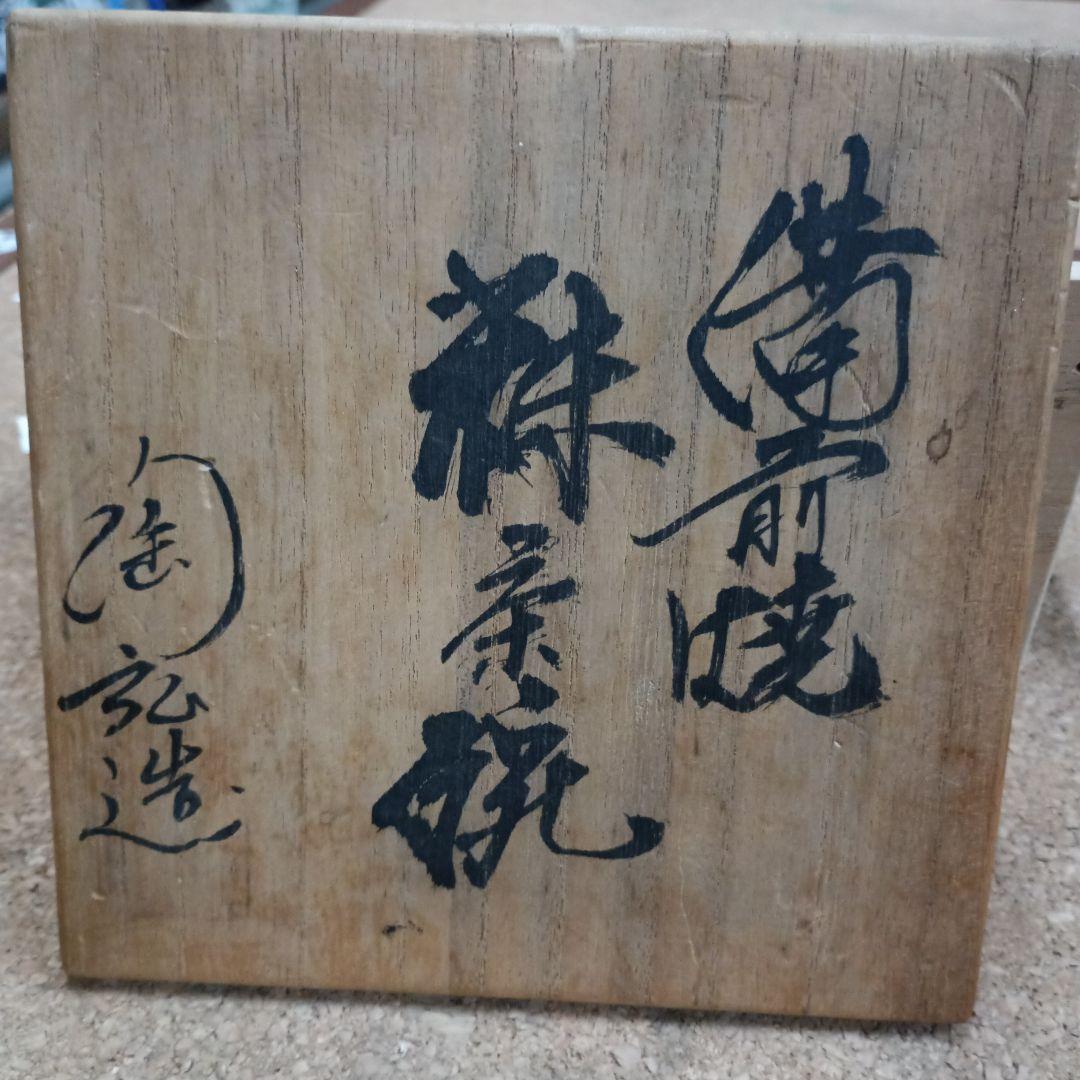 備前焼
抹茶碗
陶弘造